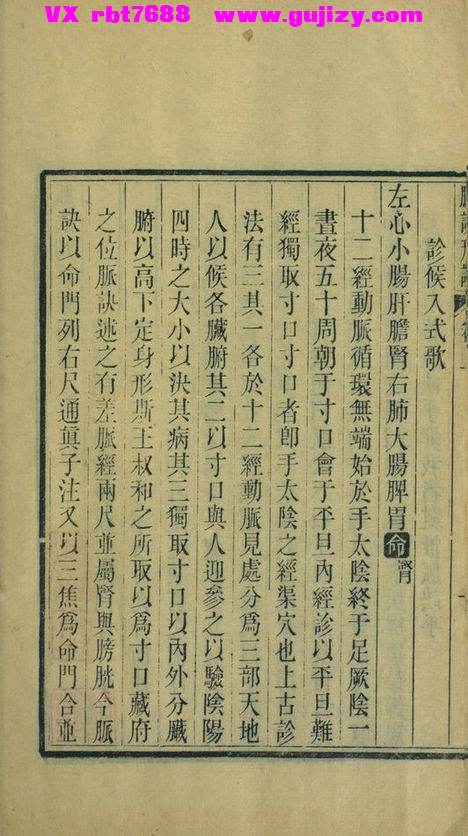 VX rbt7688 www.gujizy.com
診候入式歌
左心小腸肝膽腎右肺大腸脾胃命腎
十二經動脈循環無端始於手太陰終于足厥陰一
晝夜五十周朝于寸口會于平旦內經診以平旦難
經獨取寸口寸口者卽手太陰之經渠穴也上古診
法有三其一各於十二經動脈見處分爲三部天地
人以候各臟腑其二以寸口與人迎參之以驗陰陽
四時之大小以決其病其三獨取寸口以內外分臟
腑以高下定身形斯王叔和之所取以爲寸口藏府
之位脈訣述之有差脈經兩尺並屬腎與膀胱今脈
訣以命門列右尺通眞子注又以三焦爲命門合並